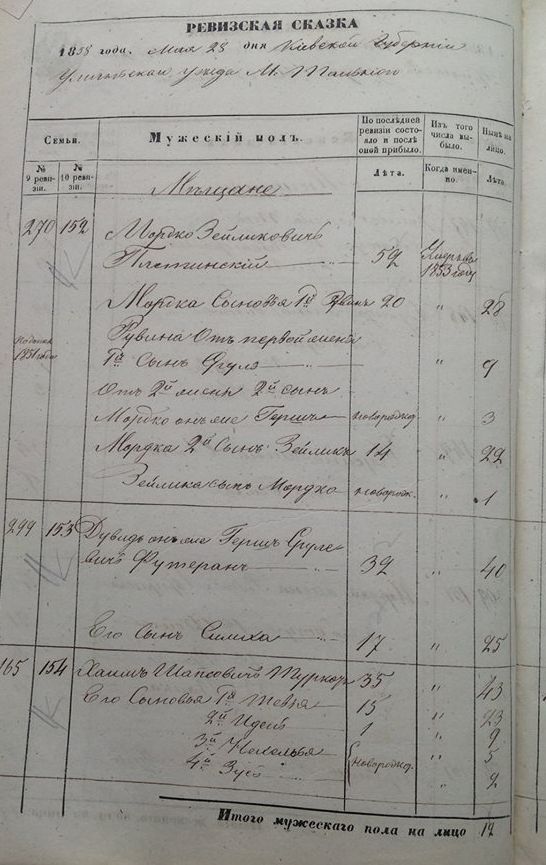 РЕВИЗСКАЯ СКАЗКА
1858 года. Мая 28 дня Кіевской Губерніи
уезда М.
Семьи. Мужескій полъ. По послѣдней ревизіи состояло и послѣ оной прибыло. Изъ того числа выбыло. Нынѣ на лицо.
№ 9 ревизіи. № 10 ревизіи. Лѣта. Когда именно. Лѣта.
Мѣщане
270 152 Мордко Зейликовичъ
59 Умеръ въ 1853 году
Мордка Сыновья 1й Рувинъ 20 " 28
1851 года
Рувина Отъ первой жены
1й Сынъ Сруль " 9
Отъ 2й жены 2й сынъ
Мордко онъ же Гершъ новорожд. " 3
Мордка 2й Сынъ Зейликъ 14 " 22
Зейлика сынъ Мордко новорож. " 1
299 153 Дувидъ онъ же Гершъ Сруле-
вичъ Футеранъ 32 " 40
Его Сынъ Симха 17 " 25
165 154 Хаимъ Шапсовичъ 35 " 43
Его Сыновья 1й Тевья 15 " 23
2й 1 " 9
3й новорожд. " 5
4й Зусь " 2
Итого мужескаго пола на лицо 12